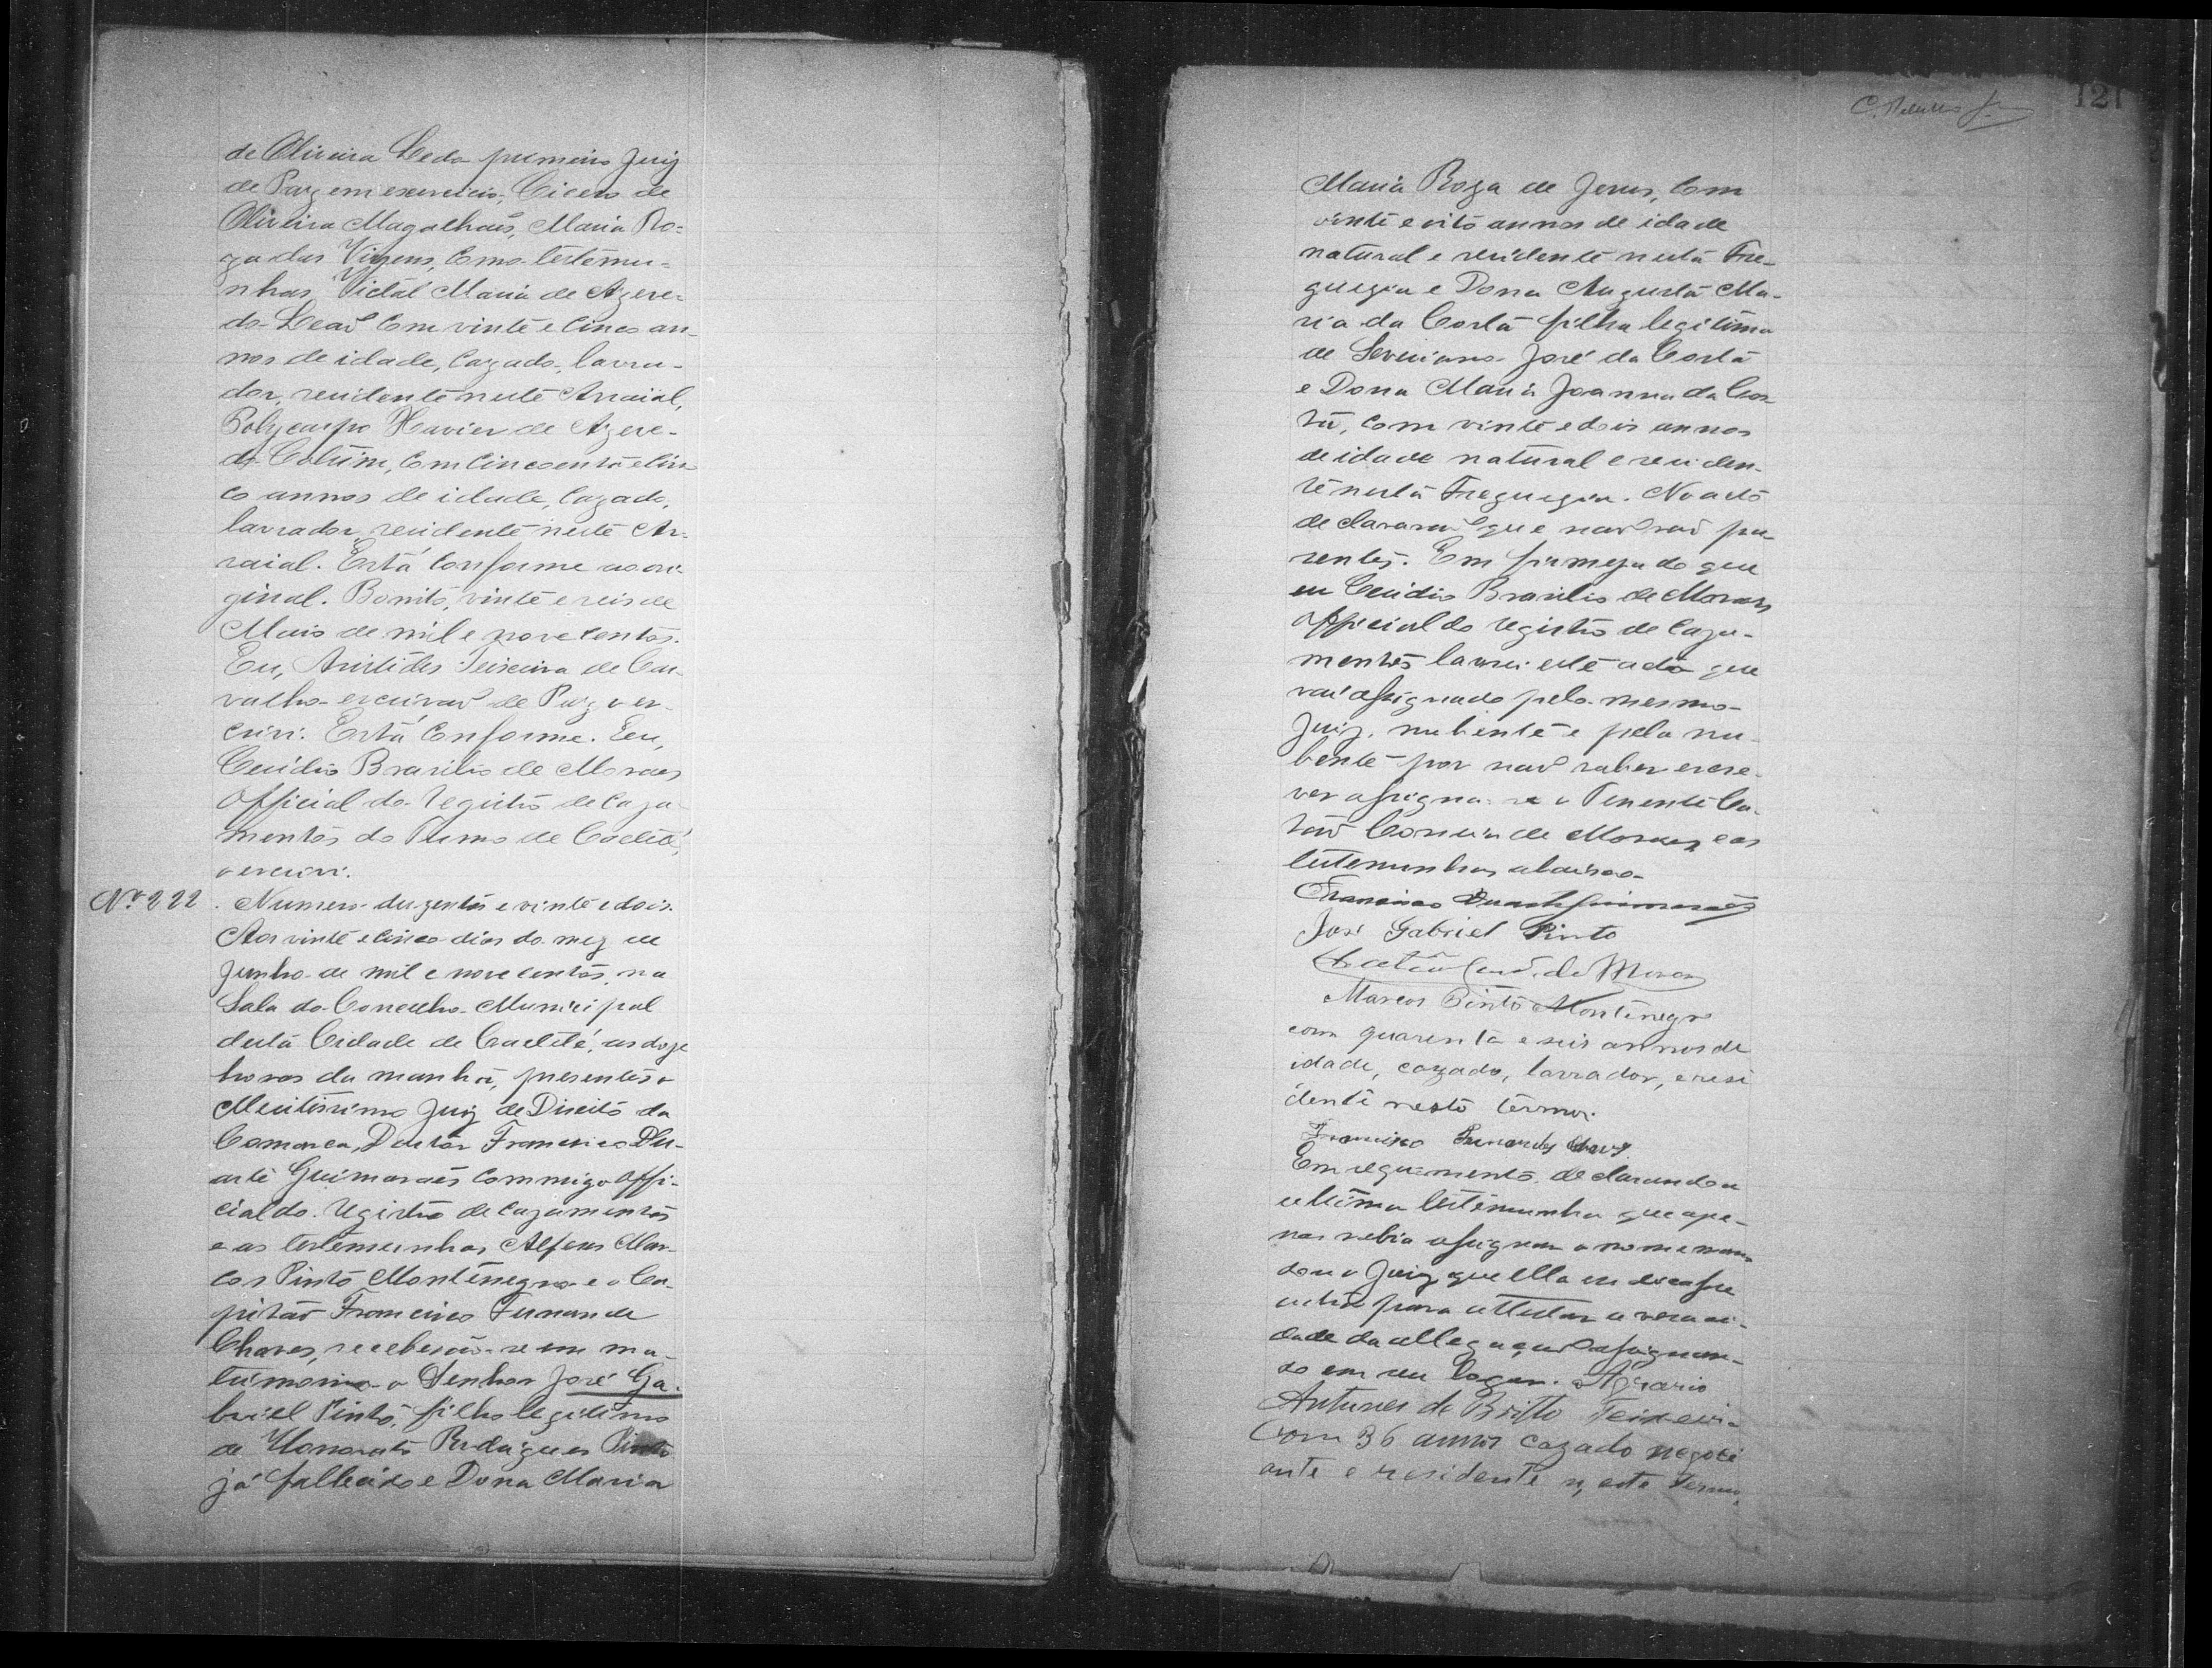 de Oliveira Ledo primeiro Juiz
de Paz em exercicio, Cicero de
Oliveira Magalhaẽs, Maria Ro=
za das Virgens, Como testemu=
nhas Vidál Maria de Azere=
do Leaõ Com vinte e Cinco an-
nos de idade, Cazado, lavra-
dor, residente neste Arraial,
Polycarpo Xavier de Azere-
do Cotrim, Com Cincoenta e Cin
co annos de idade, Cazado,
lavrador, residente neste Ar-
raial. Está Conforme ao ori
ginal. Bonito, vinte e seis de
Maio de mil e nove centos.
Eu, Aristides Teixeira de Car-
valho escrivaõ de Paz o es-
crivi. Está Conforme. Eu,
Cecidio Brasilio de Moraes
Official do Registro de Caza-
mentos do Termo de Caeteté,
o escrivi.
Nº 222. Numero duzentos e vinte e dois.
Aos vinte e cinco dias do mez de
Junho de mil e nove centos, na
Sala do Concelho Municipal
desta Cidade de Caeteté, as doze
horas da manhã, presentes o
Meritissimo Juiz de Direito da
Comarca, Doutor Francisco Du-
arte Guimaraẽs Commigo Offi-
cial do Registro de Cazamentos
e as testemunhas Alferes Mar-
cos Pinto Montenegro e o Ca-
pitaõ Francisco Fernande
Chaves, receberaõ-se em ma-
trimonio o Senhor José Ga-
briel Pinto, filho legitimo
de Honorato Rodrigues Pinto
já fallecido e Dona Maria
121
Maria Roza de Jesus, Com
vinte e oito annos de idade
natural e residente nesta Fre-
guezia e Dona Augusta Ma-
ria da Costa filha legitima
de Severiano José da Costa
e Dona Maria Joanna da Cos-
ta, Com vinte e dois annos
de idade natural e residen-
te nesta Freguezia. No acto
declararaõ que naõ saõ pa-
rentes. Em firmeza do que
eu Cecidio Brasilio de Moraes
Official do registro de Caza-
mentos lavrei este acto que
vai assignado pelo mesmo
Juiz, nubente e pela nu-
bente por naõ saber escre-
ver assigna-se o Tenente Ca-
taõ Correia de Moraes e as
testemunhas abaixo
Francisco Duarte Guimaraẽs
José Gabriel Pinto
Marcos Pinto Montenegro
com quarenta e seis annos de
idade, cazado, lavrador, e resi
dente nesto termo.
Francisco Fernandes Chaves
Em seguimento, declarando a
ultima testemunha que ape-
nas sabia assignar o nome man-
dou o Juiz que
outra para attestar a veraci-
dade da allegaçaõ assignan-
do em seu logar. Agrario
Antunes de Britto Teixeira
Com 36 annos cazado negoci
ante e residente n'este Termo,